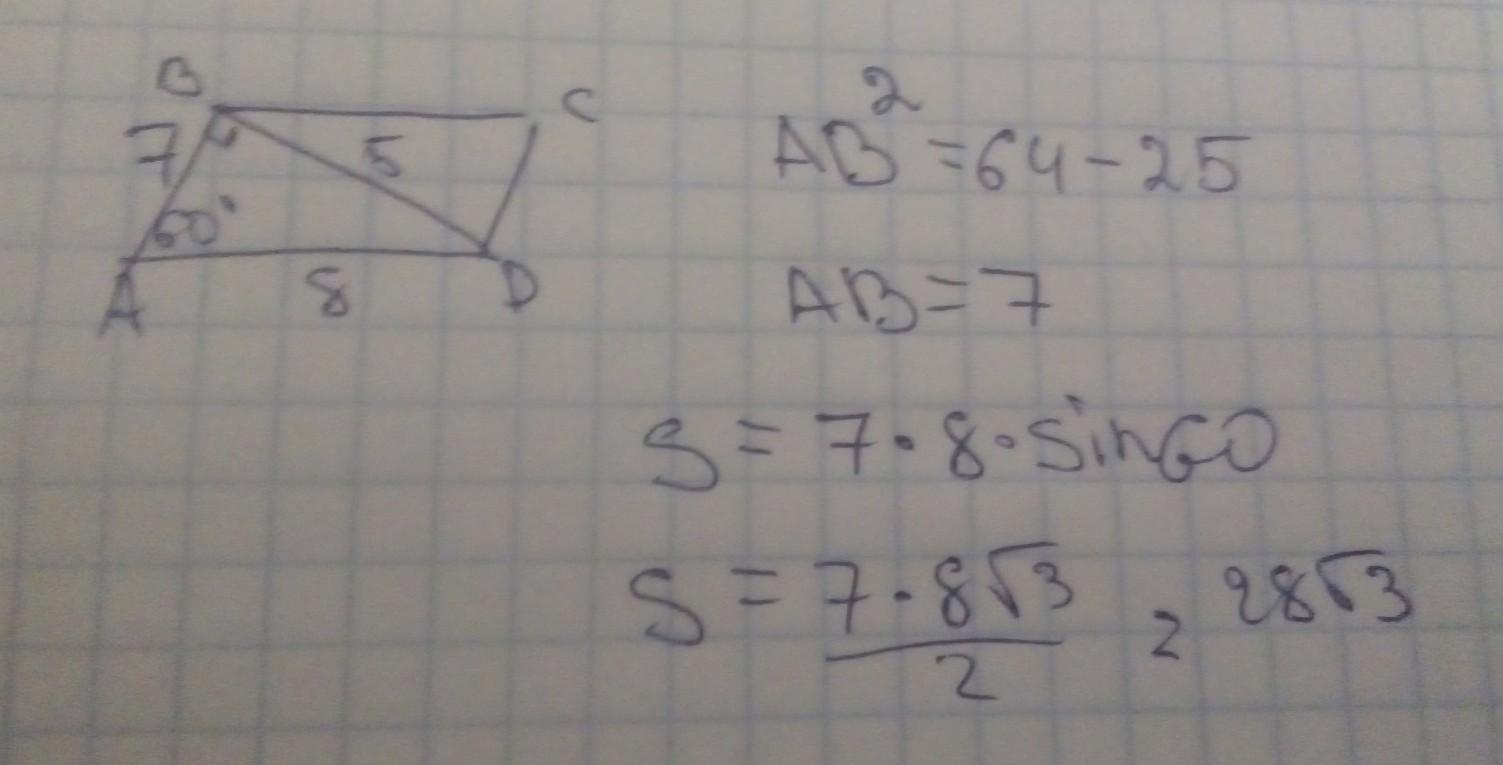 B
C
7
5
60°
A
8
D
AB² = 64 - 25
AB = 7
S = 7 · 8 · sin60
S = 7 · 8√3 / 2 = 28√3